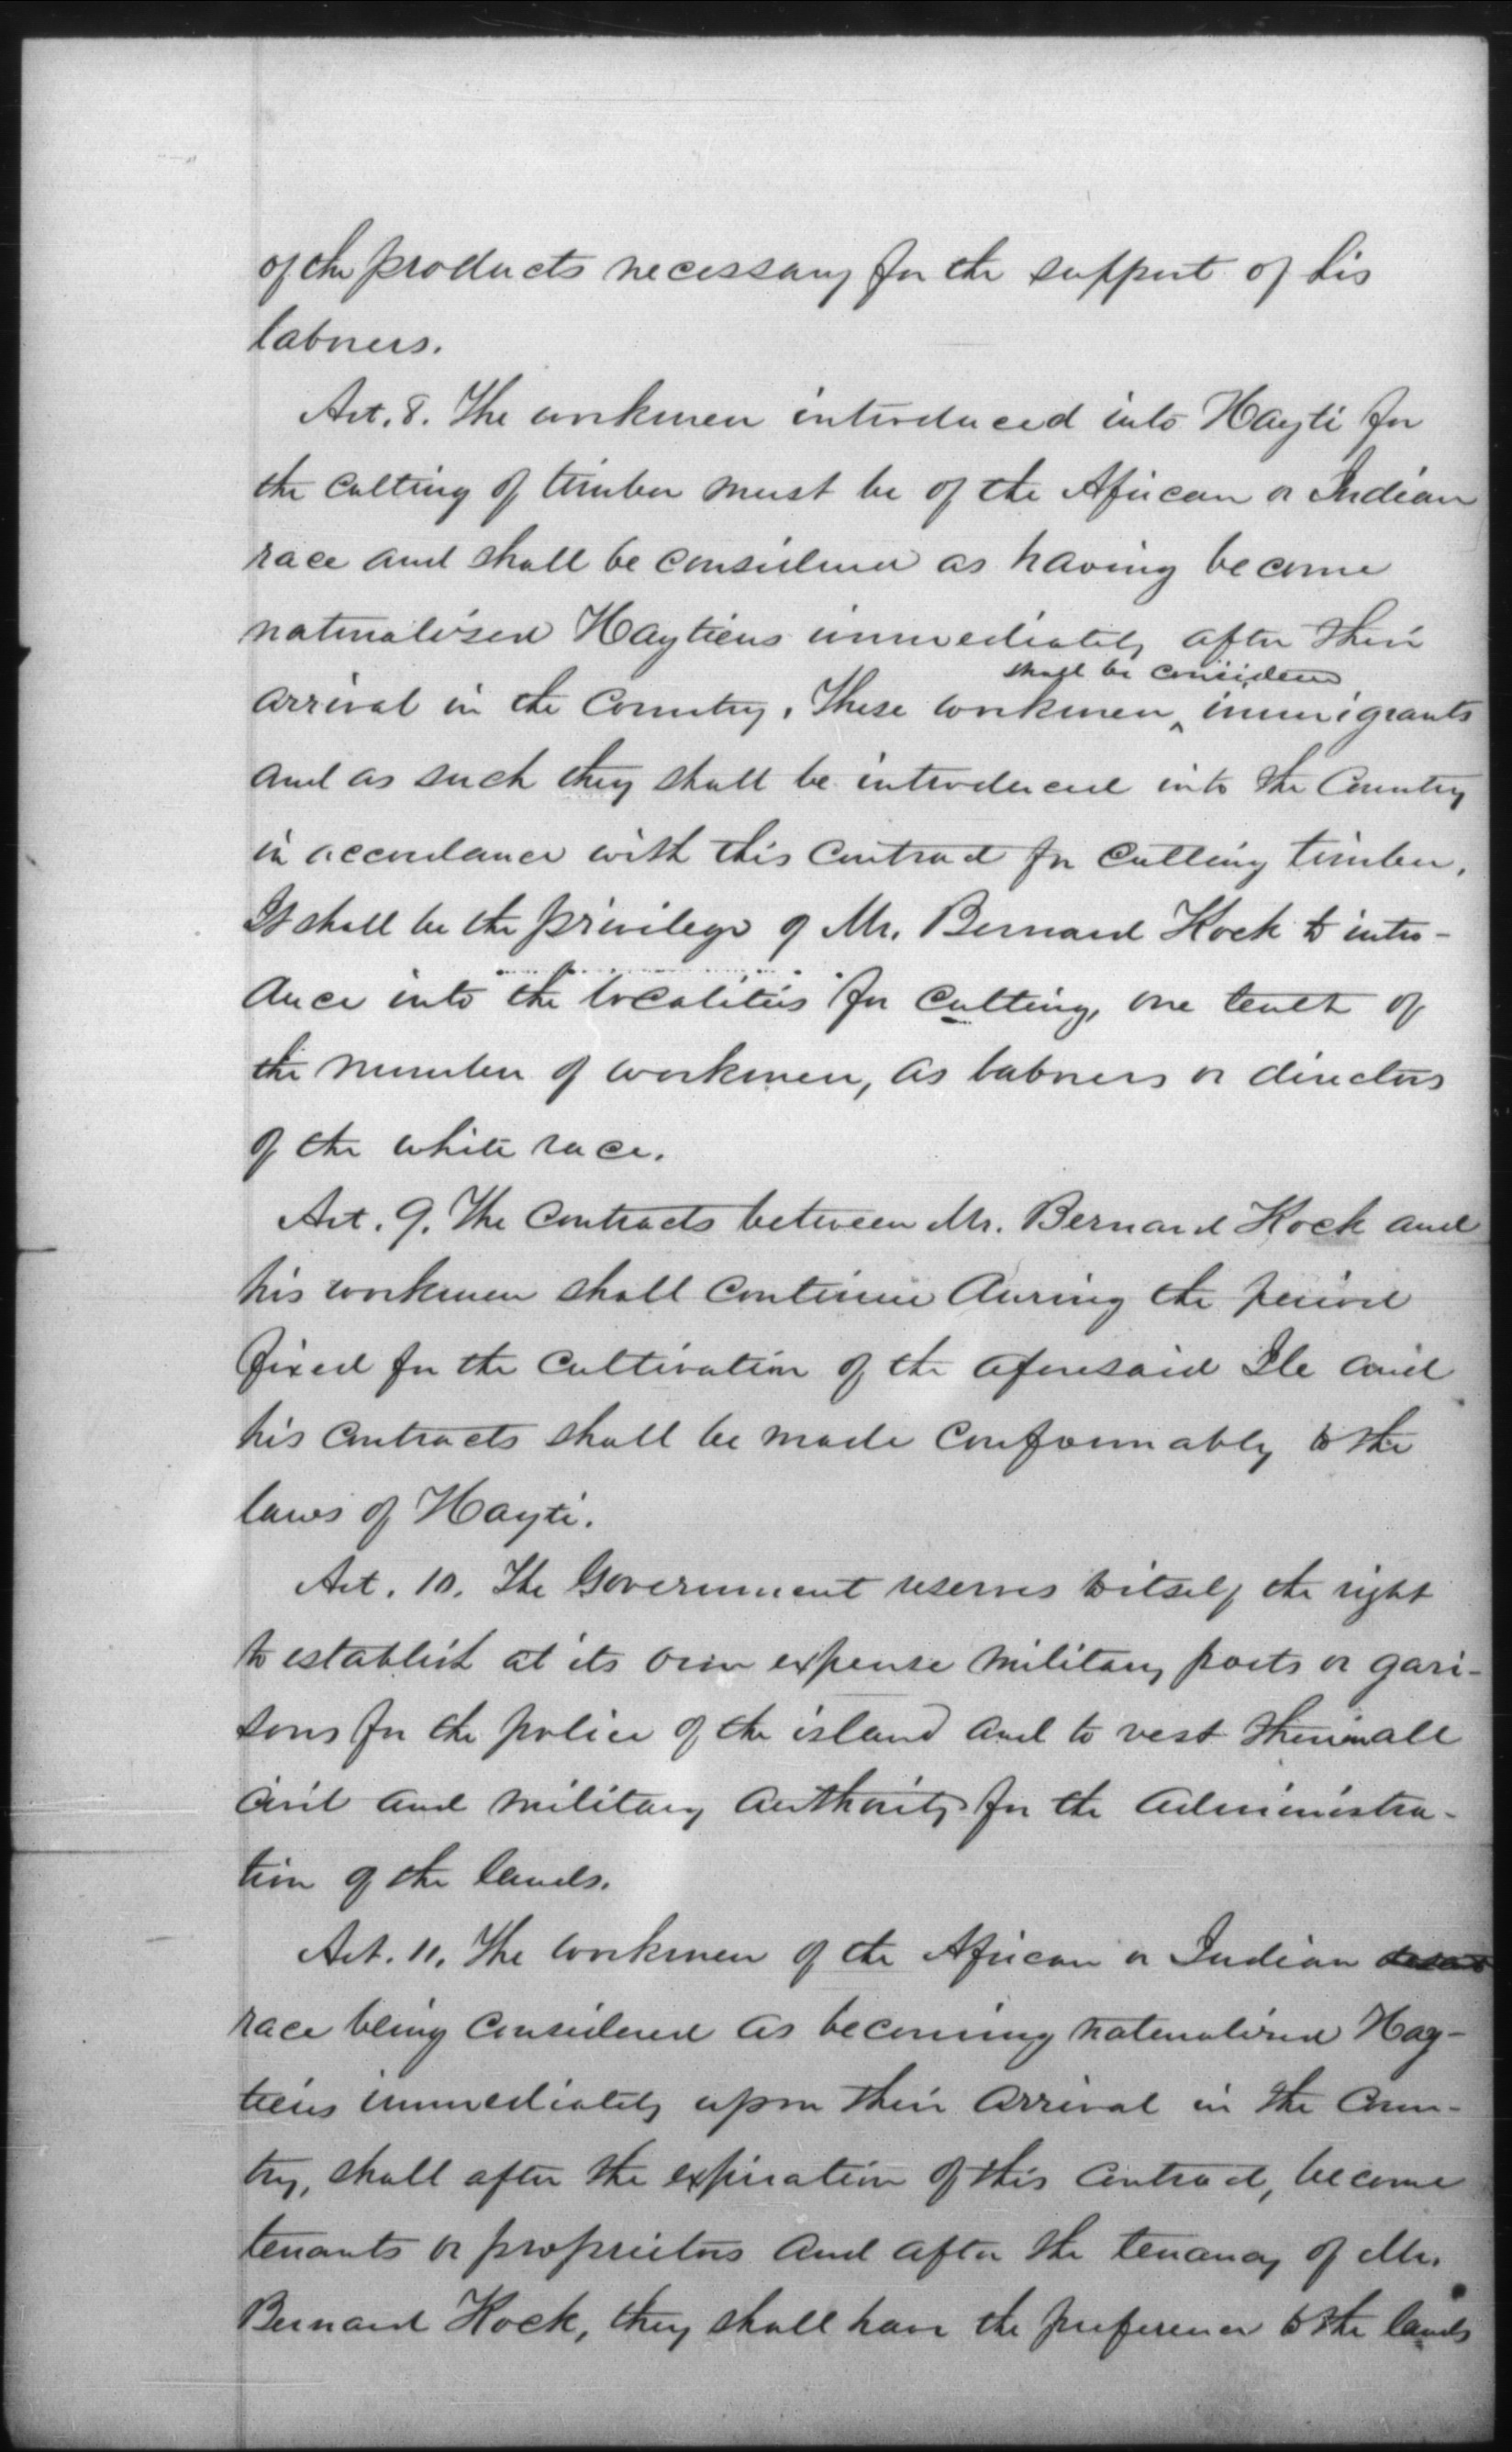 of the products necessary for the support of his
laborers.
Art. 8. The workmen introduced into Hayti for
the cutting of timber must be of the African or Indian
race and shall be considered as having become
naturalised Haytiens immediately after their
shall be considered
arrival in the Country. These workmen ‸ immigrants
and as such they shall be introduced into the Country
in accordance with this Contract for Cutting timber.
It shall be the privilege of Mr. Bernard Kock to intro-
duce into the localities for Cutting, one tenth of
the number of workmen, as laborers or directors
of the white race.
Art. 9. The Contracts between Mr. Bernard Kock and
his workmen shall Continue during the period
fixed for the Cultivation of the aforesaid Ile and
his Contracts shall be made Conformably to the
laws of Hayti.
Art. 10. The Government reserves to itself the right
to establish at its own expense military posts or gari-
sons for the police of the island and to vest therein all
Civil and military authority for the administra-
tion of the lands.
Art. 11. The workmen of the African or Indian
race being Considered as becoming naturalised Hay-
tiens immediately upon their arrival in the Coun-
try, shall after the expiration of this Contract, become
tenants or proprietors and after the tenancy of Mr.
Bernard Kock, they shall have the preference to the lands